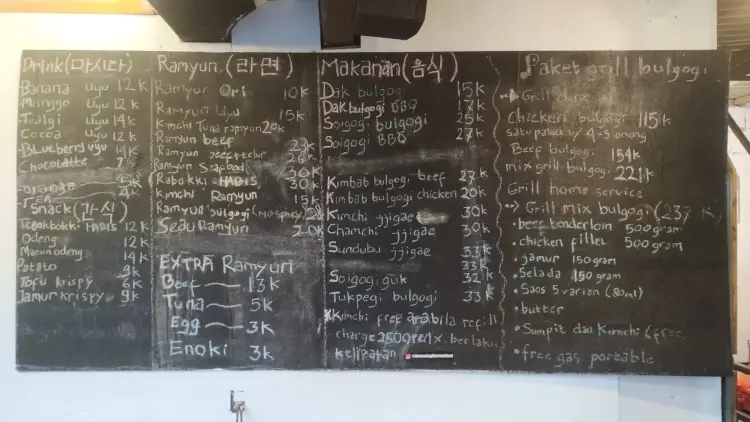 Drink (마시다)
Banana uyu 12 k
Munggo uyu 12 k
Tealgi uyu 14 k
Cocoa uyu 12 k
Blueberri uyu 14 k
Chocolatte 7
orange 5k
TEA
Snack (간식)
Tteokbokki HABIS 12 k
Odeng 12 k
Maeun odeng 14 k
Potato 9k
Tofu krispy 6 k
Jamur krispy 9k
Ramyun (라면)
Ramyun Ori 10k
Ramyun Uyu 15k
Kimchi Tuna ramyun 20k
Ramyun beef 23k
Ramyun beef + telur 26k
Ramyun Seafood 30k
(Rabokki HABIS 30k
Kimchi Ramyun 15k
Ramyun bulgogi (no spicy)
Sedu Ramyun 20k
EXTRA Ramyun
Beef 13k
Tuna 5k
Egg 3k
Enoki 3k
Makanan (음식)
Dak bulgogi 15k
Dak bulgogi BBQ 17k
Soigogi bulgogi 25k
Soigogi BBQ 27k
Kimbab bulgogi beef 27k
Kimbab bulgogi chicken 20k
Kimchi jjigae 30k
Chamchi jjigae 30k
Sundubu jjigae 33k
33
Soigogi guk 32k
Tukpegi bulgogi 33k
*Kimchi free apabila refill
charge 2500 per 1x. berlaku
kelipatan
Paket Grill bulgogi
Grill
Chicken bulgogi 115k
satu paket u/ 4-5 orang
Beef bulgogi 154k
mix grill bulgogi 221k
Grill home service
Grill mix bulgogi (237 k)
• beef tenderloin 500 gram
• chicken fillet 500 gram
• jamur 150 gram
• Selada 150 gram
• Saos 5 varian (80ml)
• butter
• Sumpit dan Kimchi (free
• free gas portable